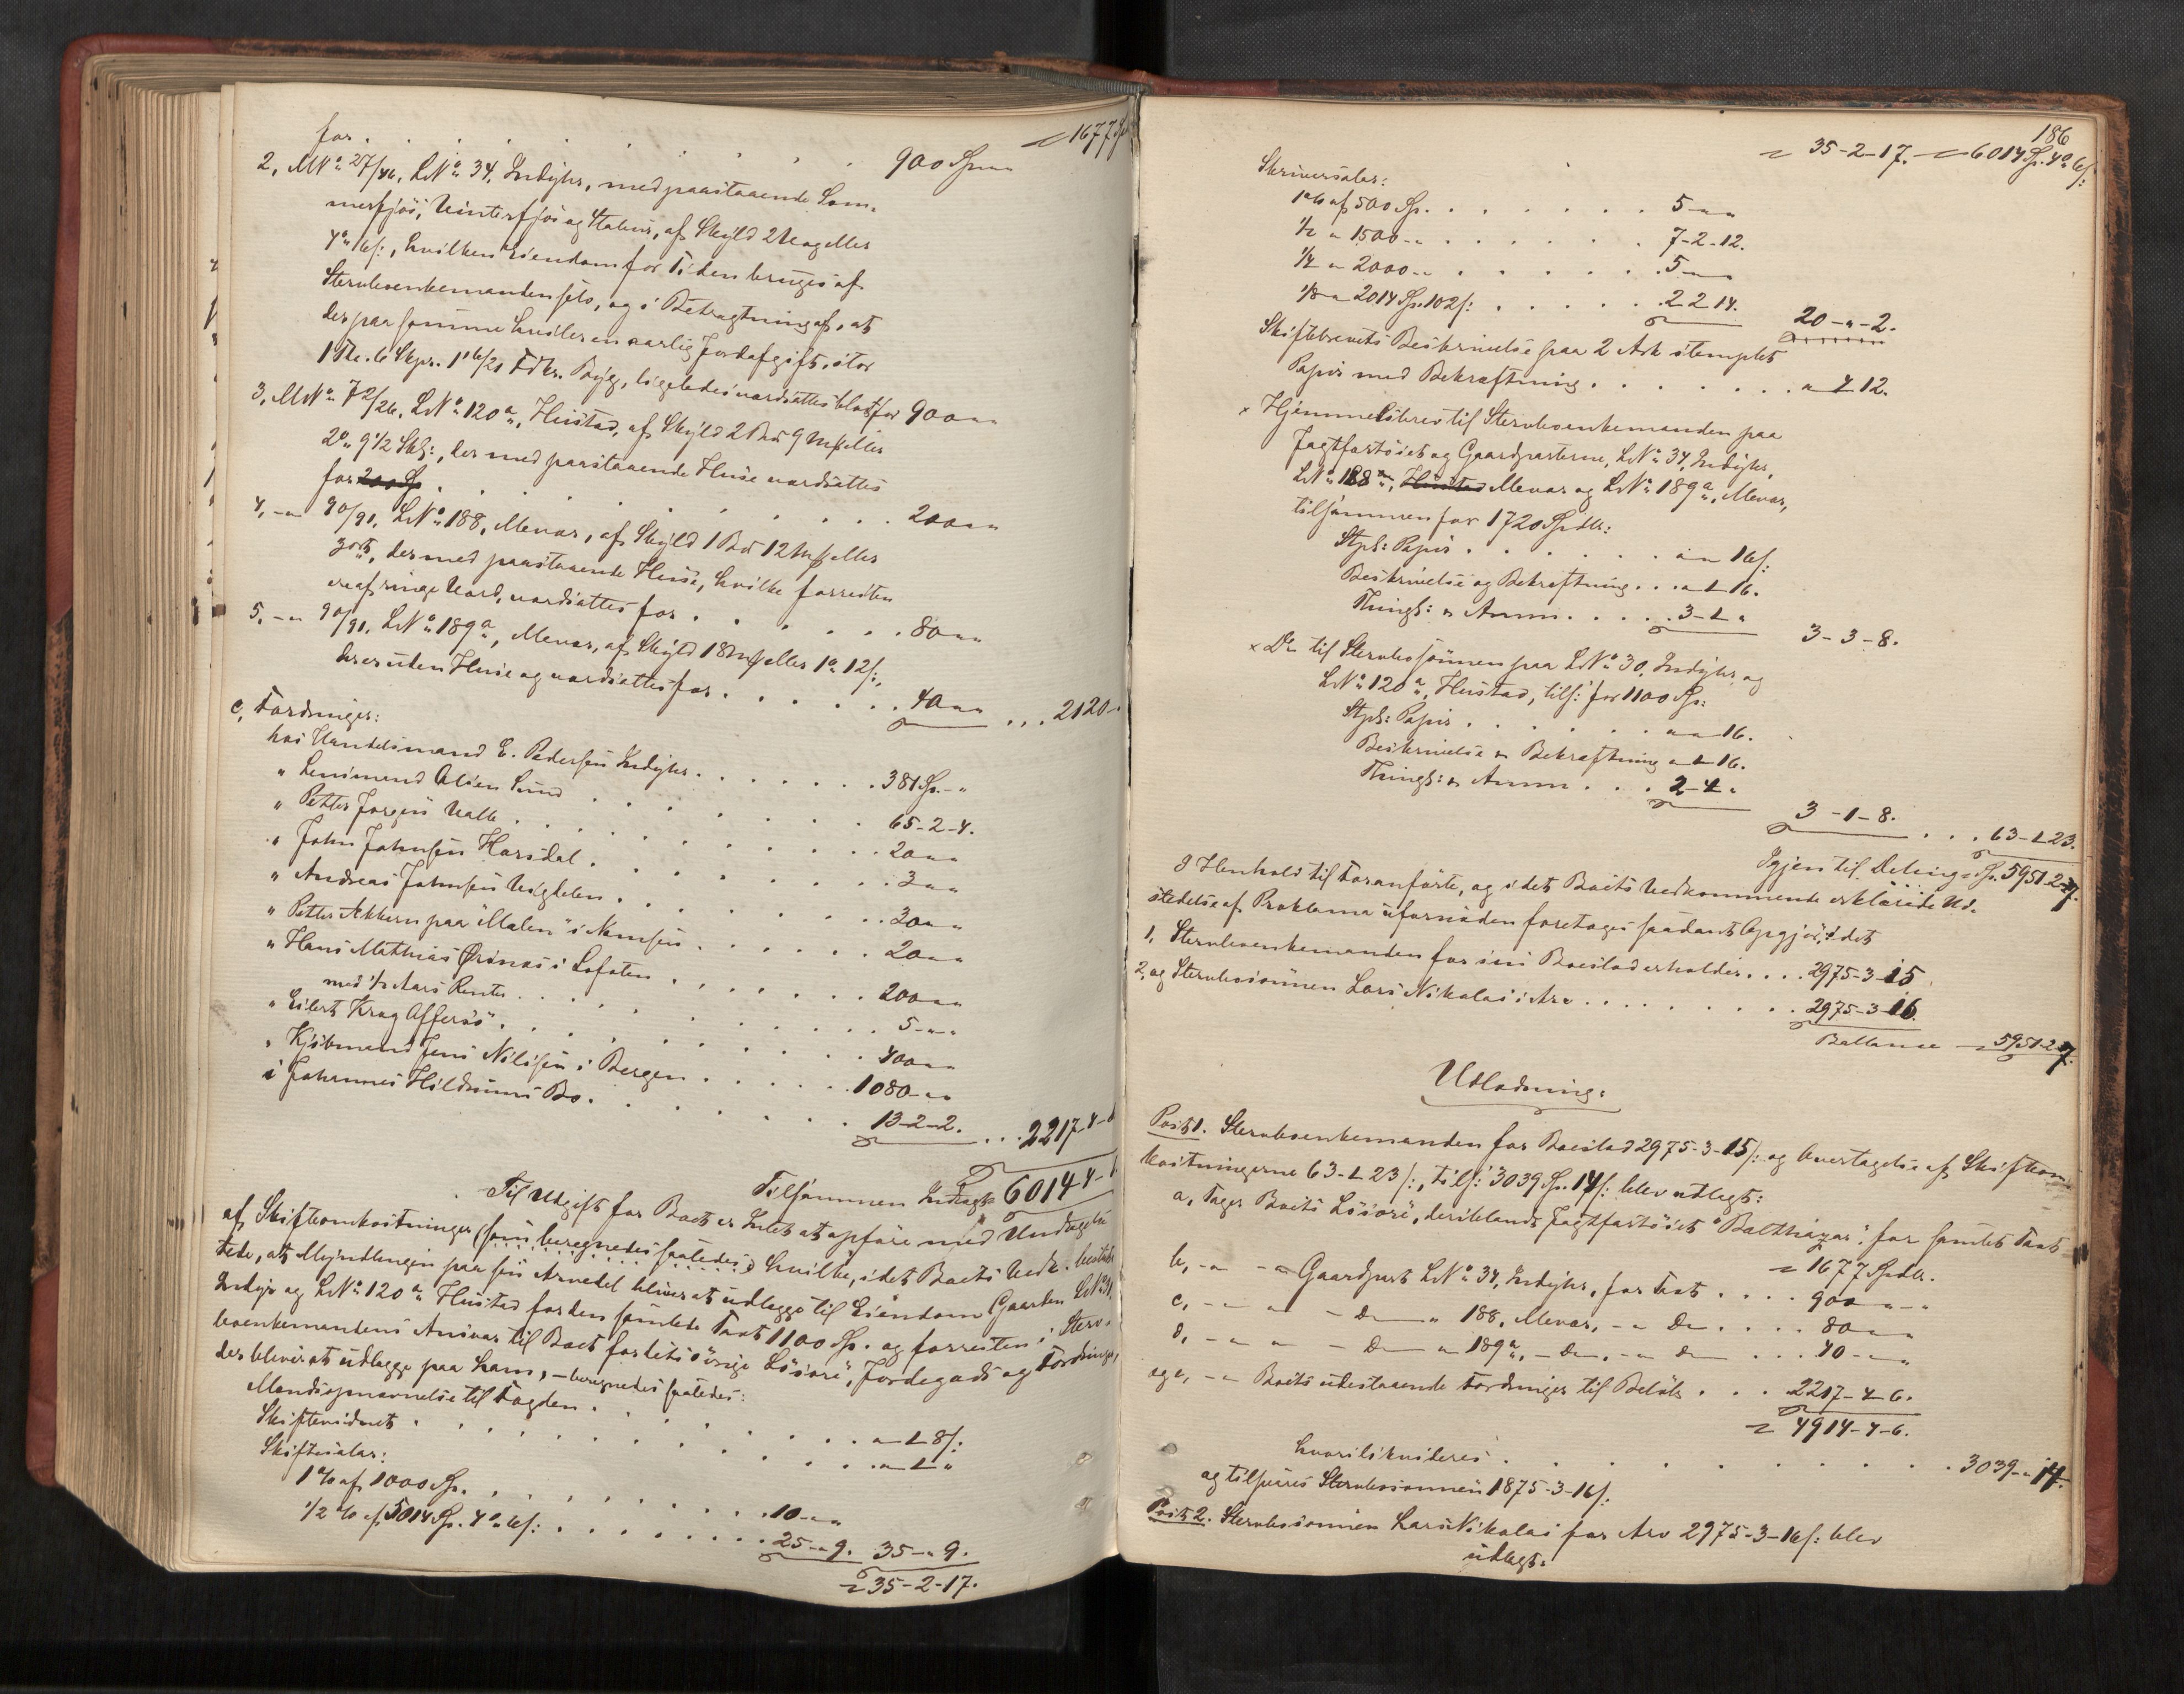 1677 Sp
for . . . . . . . 900 Sp „ „
2, MNo 27/46, LNo 34, Indyhr, med paastaaende Som-
merfjös, Vinterfjös og Stabur, af Skyld 2 Vog eller
4 „ 6 ſ:, hvilken Eiendom for Tiden bruges af
Stervboenkemanden selv, og i Betragtning af, at
der paa samme hviler en aarlig Jordafgift, stor
1 Tde. 6 Skpr. Byg, ligeledes vardsattes blot for 900 „ „
3, MNo 72/26, LNo 120a, Hustad, af Skyld 2 Pd 9 Mk eller
2 „ 9 1/2 Sk:, der med paastaaende Huse vardsattes
for 200 Sp . . . . . . . 200 „ „
4, – „ 90/91, LNo 188, Mevar, af Skyld 1 Pd 12 Mk eller
3 ort, der med paastaaende Huse, hvilke forresten
ere af ringe Vard, vardsattes for . . . . . 80 „ „
5, – „ 90/91, LNo 189a, Mevar, af Skyld 18 Mk eller 1 „ 12 ſ:,
der er uden Huse og vardsattes for . . . . . 40 „ „ . . . 2120 „
c, Fordringer:
hos Handelsmand E. Pedersen Indyhr . . . . . 381 Sp. – „
„ Lensmand Lund . . . . . 65-2-4.
„ Petter Jørgen Valle . . . . . 20 „ „
„ John Johnsen Horsdal . . . . . 3 „ „
„ Andreas Johnsen . . . . . 30 „ „
„ Petter Akkern paa "Malen" i Namsen . . . . . 20 „ „
„ Hans Mathias Örsnes i Lofoten . . . . . 200 „ „
med 1/2 Aars Renter . . . . . 5 - „ „
„ Eilert Krog Offersö . . . . . 400 „ „
„ Kjöbmand Jens Nilsen i Bergen . . . . . 1080 - „ „
i Johannes Hildrums Bo . . . . . 13-2-2. . . . 2217-4-6
Tilsammen Indtagt 6014 4-6
Til Udgift for Boet er Intet at opföre med Undtagelse
af Skifteomkostninger (som beregnedes saaledes) hvilke, idet Boets Vedk. bestem-
tede, at Myndlingen paa sin Arvedel bliver at udlagge til Eiendom Gaarden LNo 30,
Indyr og LNo 120a Hustad for den samlede Taxt 1100 Sp. og forresten i Sterv-
boenkemandens Ansvar til Boet for dets övrige Lösöre, Jordegods og Fordringer,
der bliver at udlagge paa ham, – beregnedes saaledes:
Mandsopnavnelse til Fogden . . . . . „ 1 8 ſ:
Skiftevidnet . . . . . „ 1 „
Skiftesalar:
1 % af 1000 Sp. . . . . . 10 - „ „
1/2 % af 5014 Sp. 4 „ 6 ſ: . . . . . 25 - „ 9. 35 - „ 9.
35-2-17.
186
35-2-17. 6014 Sp. 4 „ 6 ſ:
Skriversalar:
1 % af 500 Sp. . . . . . 5 „ „
1/2 „ 1500 - „ . . . . . 7-2-12.
1/4 „ 2000 - „ . . . . . 5 „ „
1/8 „ 2014 Sp. 102 ſ: . . . . . 2 2 14. 20 - „ - 2.
Skiftebrevets Beskrivelse paa 2 Ark stemplet
Papir med Bekraftning . . . . . „ 4 12.
x Hjemmelsbrev til Stervboenkemanden paa
Jagtfartöiet og Gaardparterne, LNo 34, Indyhr,
LNo 188a, Hustad Mevar og LNo 189a, Mevar,
tilsammen for 1720 Spdlr:
Stpl: Papir . . . . . „ „ 16 ſ:
Beskrivelse og Bekraftning . . . „ 1 16.
Thingl: & Annon . . . . . 3-1 „ 3-3-8.
x Do til Stervbosönnen paa LNo 30, Indyhr og
LNo 120a, Hustad, tils: for 1100 Sp:
Stpl: Papir . . . . . „ „ 16.
Beskrivelse & Bekraftning „ 1 16.
Thingl: & Annon . . . 2-4 „ 3-1-8. . . . 63-1 23.
Igjen til Deling Sp. 5951-2-7.
I Henhold til Foranförte, og idet Boets Vedkommende erklarede Ud-
stedelse af Proklama ufornöden foretoges saadant Opgjör, idet
1, Stervboenkemanden for sin Boeslod erholder . . . . 2975-3-15
2, og Stervbosönnen Lars Nikolai i Arv . . . . . 2975-3-16.
Ballance 5951-2-7.
Udlodning:
Post 1. Stervboenkemanden for Boeslod 2975-3-15 ſ: og Overtagelse af Skifteom-
kostningerne 63-1-23 ſ:, tils: 3039 Sp. 14 ſ: blev udlagt:
a, Tager Boets Lösöre, deriblandt Jagtfartöiet "Balthazar", for samlet Taxt
1677 Spdlr.
b, – „ – „ Gaardpart LNo 34, Indyhr, for Taxt . . . . 900 „ – „
c, – „ „ – Do „ 188, Mevar, – „ Do . . . . 80 „ „
d, – „ „ – Do „ 189a, – Do, – „ Do . . . 40 - „ „
og e, – „ Boets udestaaende Fordringer til Belöb . . . 2217-4-6.
4914-4-6.
hvori likvideres . . . . . 3039 - „ 14.
og tilsvares Stervbosönnen 1875-3-16 ſ:
Post 2. Stervbosönnen Lars Nikolai for Arv 2975-3-16 ſ: blev
udlagt: